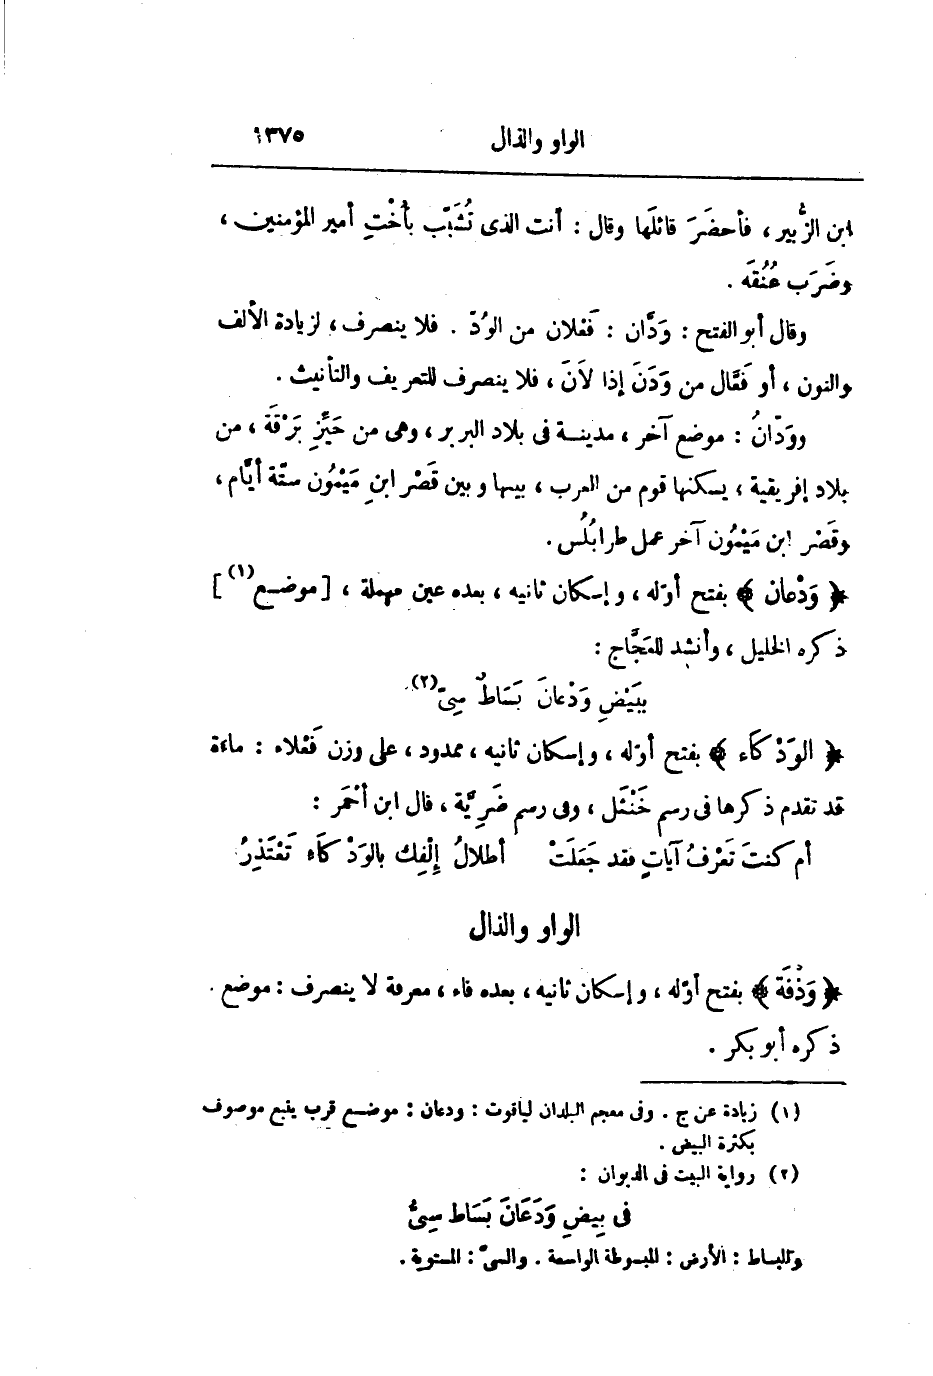 الواو والذال ١٣٧٥
ابن الزُّبير ، فأحضَرَ قائلَها وقال : أنت الذى تُشَبِّب بأُخْتِ أمير المؤمنين ،
وضَرَب عُنُقَه .
وقال أبو الفتح : وَدَّان : فَعْلان من الوُدّ . فلا ينصرف ، لزيادة الألف
والنون ، أو فَعَّال من وَدَنَ إذا لَانَ ، فلا ينصرف للتعريف والتأنيث .
ووَدّانُ : موضع آخر ، مدينـة فى بلاد البربر ، وهى من حَيِّزِ بَرْقَة ، من
بلاد إفريقية ، يسكنها قوم من العرب ، بينها وبين قَصْر ابنِ مَيْمُون ستّة أيَّام ،
وقَصْر ابن مَيْمُون آخر عمل طرابُلُس .
﴿ وَدْعان ﴾ بفتح أوّله ، وإسكان ثانيه ، بعده عين مهملة ، [ موضـع (١) ]
ذكره الخليل ، وأنشد للعَجَّاج :
ببَيْضِ وَدْعانَ بَسَاطٌ سِىّ (٢)
﴿ الوَدْكَاء ﴾ بفتح أوّله ، وإسكان ثانيه ، ممدود ، على وزن فَعْلاء : ماءة
قد تقدم ذكرها فى رسم خَنْثَل ، وفى رسم ضَرِيَّة ، قال ابن أحْمَر :
أم كنتَ تَعْرِفُ آياتٍ فقد جَعَلَتْ أطلالُ إلْفِك بالوَدْكَاء تَعْتَذِرُ
الواو والذال
﴿ وَذْفَة ﴾ بفتح أوّله ، وإسكان ثانيه ، بعده فاء ، معرفة لا ينصرف : موضع .
ذكره أبو بكر .
(١) زيادة عن ج . وفى معجم البلدان لياقوت : ودعان : موضـع قرب ينبع موصوف
بكثرة البيض .
(٢) رواية البيت فى الديوان :
فى بِيضِ وَدَعَانَ بَسَاط سِىُّ
والبساط : الأرض : المبسوطة الواسعة . والسىّ : المستوية .